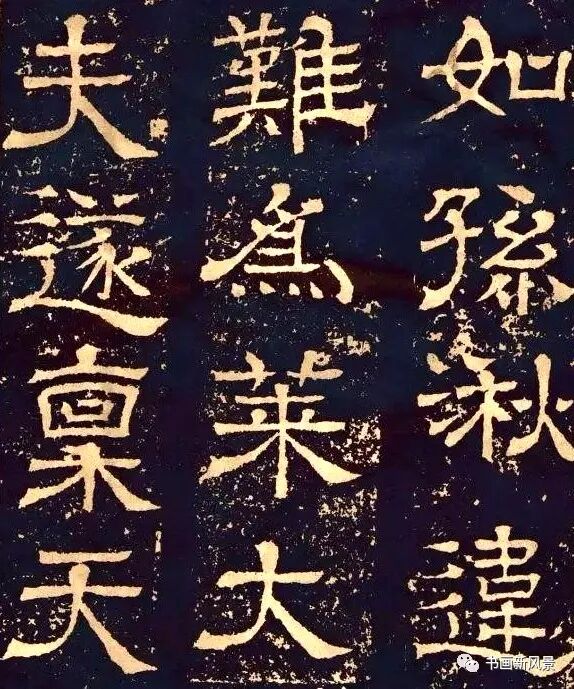 如孫湫違
難為萊大
夫遂稟天
书画新风景